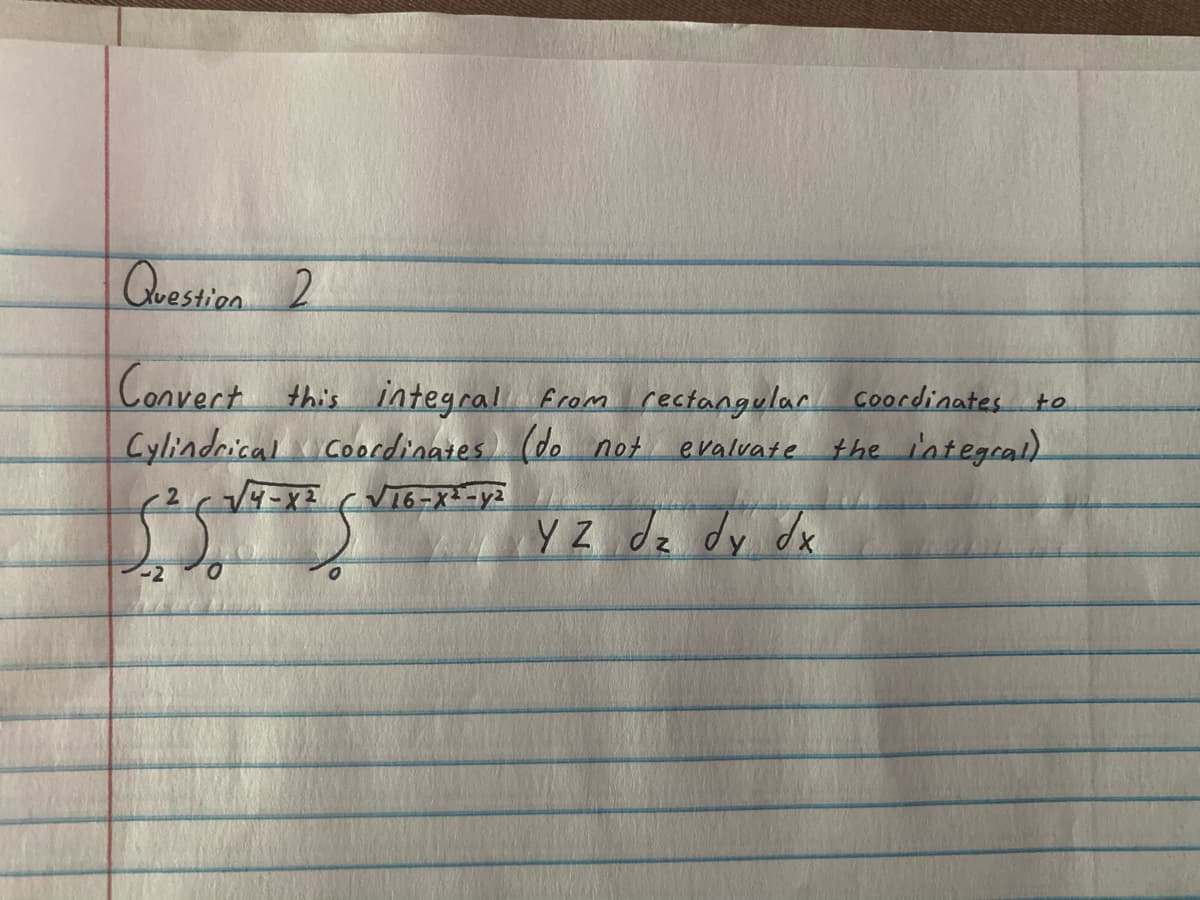 Question 2
Convert this integral from rectangular coordinates to
Cylindrical coordinates (do not evaluate the integral)
∫_{-2}^{2} ∫_{0}^{√(4-x²)} ∫_{0}^{√(16-x²-y²)} y z dz dy dx